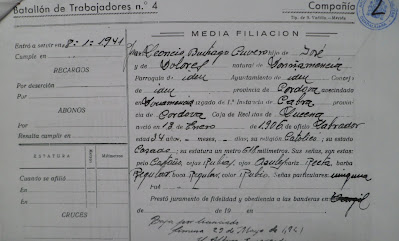 Batallón de Trabajadores n.º 4
Compañía
MEDIA FILIACION
Entró a servir en 8-1-1941
Cumple en
RECARGOS
Por deserción
Por
ABONOS
Por
Resulta cumplir en
ESTATURA
Metros
Milímetros
Cuando se afilió
En de de
En de de
CRUCES
Leoncio Buitrago hijo de José
y de Dolores natural de
Parroquia de idem Ayuntamiento de idem Concejo
de idem provincia de Cordova avecindado
en juzgado de 1.ª Instancia de Cabra provincia
de Cordova Caja de Reclutas Lucena
nació en 13 de Enero de 1906 de oficio Labrador
edad 34 años, meses, días, su religión Católica su estado
Casado, su estatura un metro 611 milímetros. Sus señas, son estas:
pelo Castaño cejas Rubas ojos nariz Recta barba
Regular boca Regular color Rubio Señas particulares ninguna
Fué
Prestó juramento de fidelidad y obediencia a las banderas
de de 19 en
Baja por licenciado
29 de Mayo de 1941